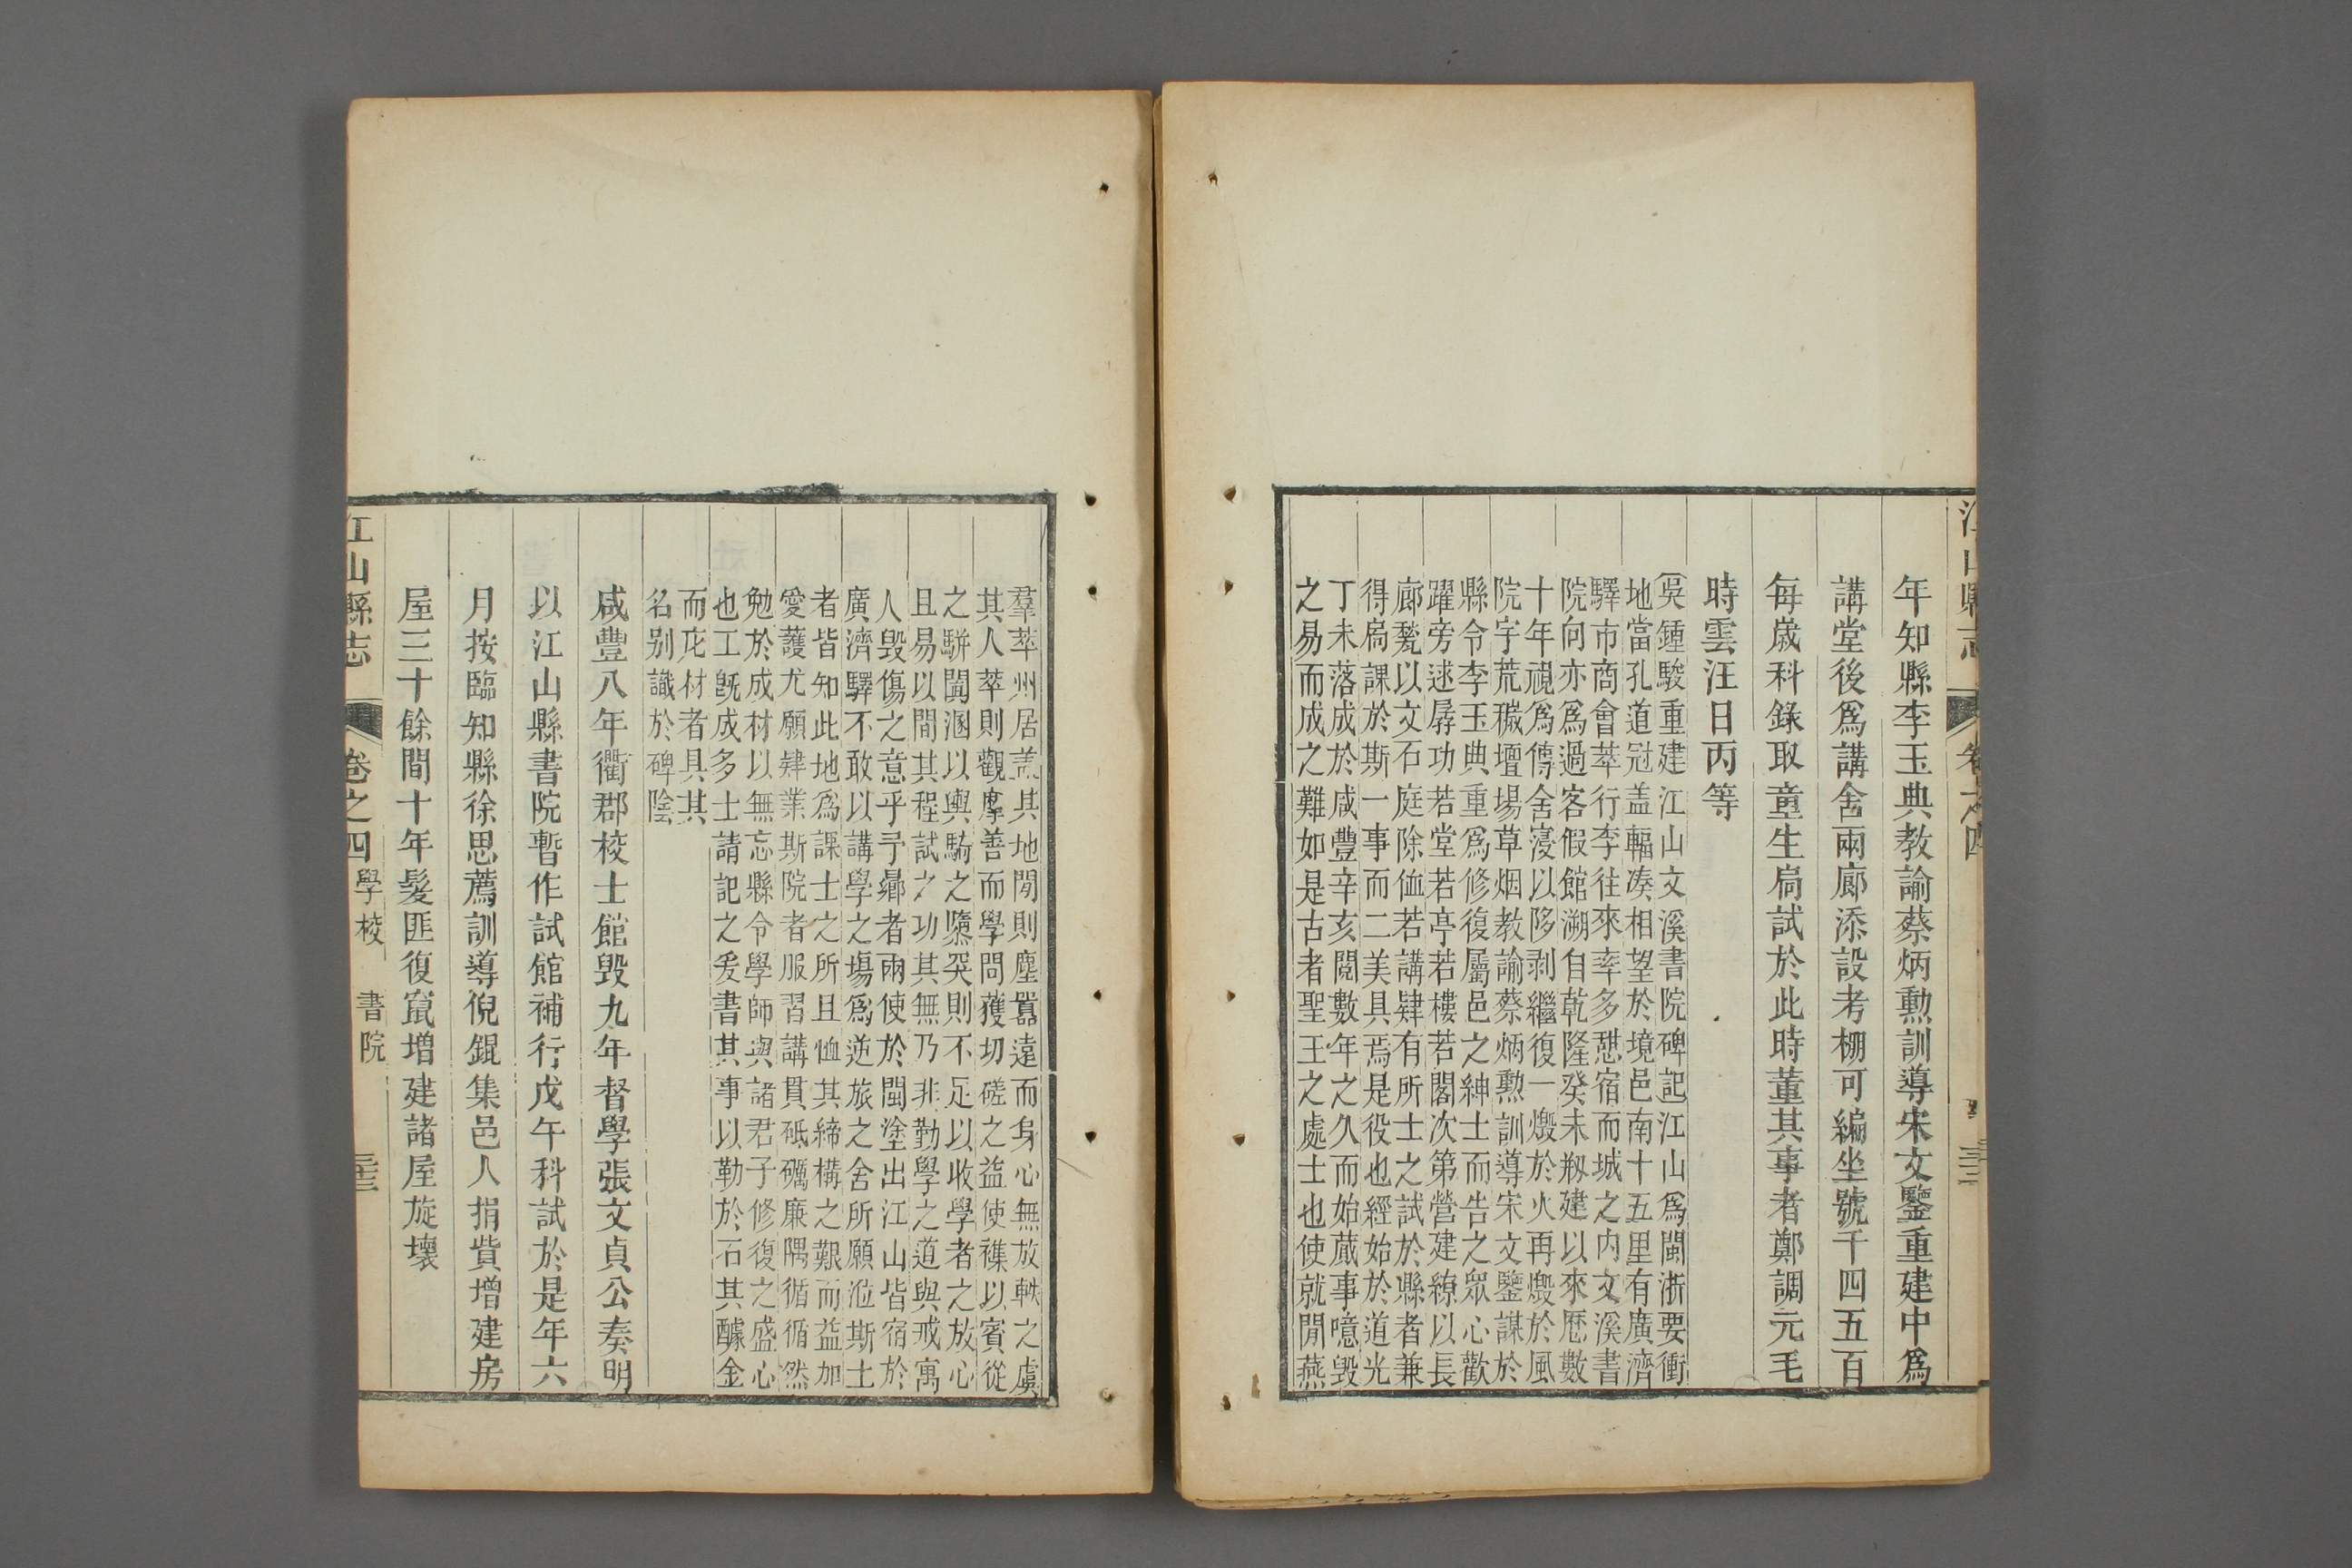 江山縣志
卷之四
年知縣李玉典教諭蔡炳勲訓導宋文鑒重建中爲
講堂後爲講舍兩廊添設考棚可編坐號千四五百
每歲科錄取童生扃試於此時董其事者鄭調元毛
時雲汪日丙等
吳鍾駿重建江山文溪書院碑記江山爲閩浙要衝
地當孔道冠盖輻湊相望於境邑南十五里有廣濟
驛市商會萃行李往來率多憇宿而城之内文溪書
院向亦爲過客假館溯自乾隆癸未剏建以來厯數
十年視爲傳舍寖以陊剥繼復一燬於火再燬於風
院宇荒穢壇場草烟教諭蔡炳勲訓導宋文鑒謀於
縣令李玉典重爲修復屬邑之紳士而告之眾心歡
躍旁逑孱功若堂若亭若樓若閣次第營建繚以長
廊甃以文石庭除侐若講肄有所士之試於縣者兼
得扃課於斯一事而二美具焉是役也經始於道光
丁未落成於咸豐辛亥閱數年之久而始蕆事噫毀
之易而成之難如是古者聖王之處士也使就閒燕
羣萃州居盖其地閒則塵囂遠而身心無放軼之虞
其人萃則觀摩善而學問獲切磋之益使襍以賓從
之駢闐溷以輿騎之隳突則不足以收學者之放心
且易以間其程試之功其無乃非勤學之道與戒寓
人毀傷之意乎予曏者兩使於閩塗出江山皆宿於
廣濟驛不敢以講學之塲爲逆旅之舍所願涖斯土
者皆知此地爲課士之所且恤其締構之艱而益加
愛護尤願肄業斯院者服習講貫砥礪廉隅循循然
勉於成材以無忘縣令學師與諸君子修復之盛心
也工旣成多士請記之爰書其事以勒於石其醵金
而庀材者具其
名别識於碑陰
咸豐八年衢郡校士館毀九年督學張文貞公奏明
以江山縣書院暫作試館補行戊午科試於是年六
月按臨知縣徐思薦訓導倪錕集邑人捐貲增建房
屋三十餘間十年髮匪復竄增建諸屋旋壞
江山縣志
卷之四 學校 書院